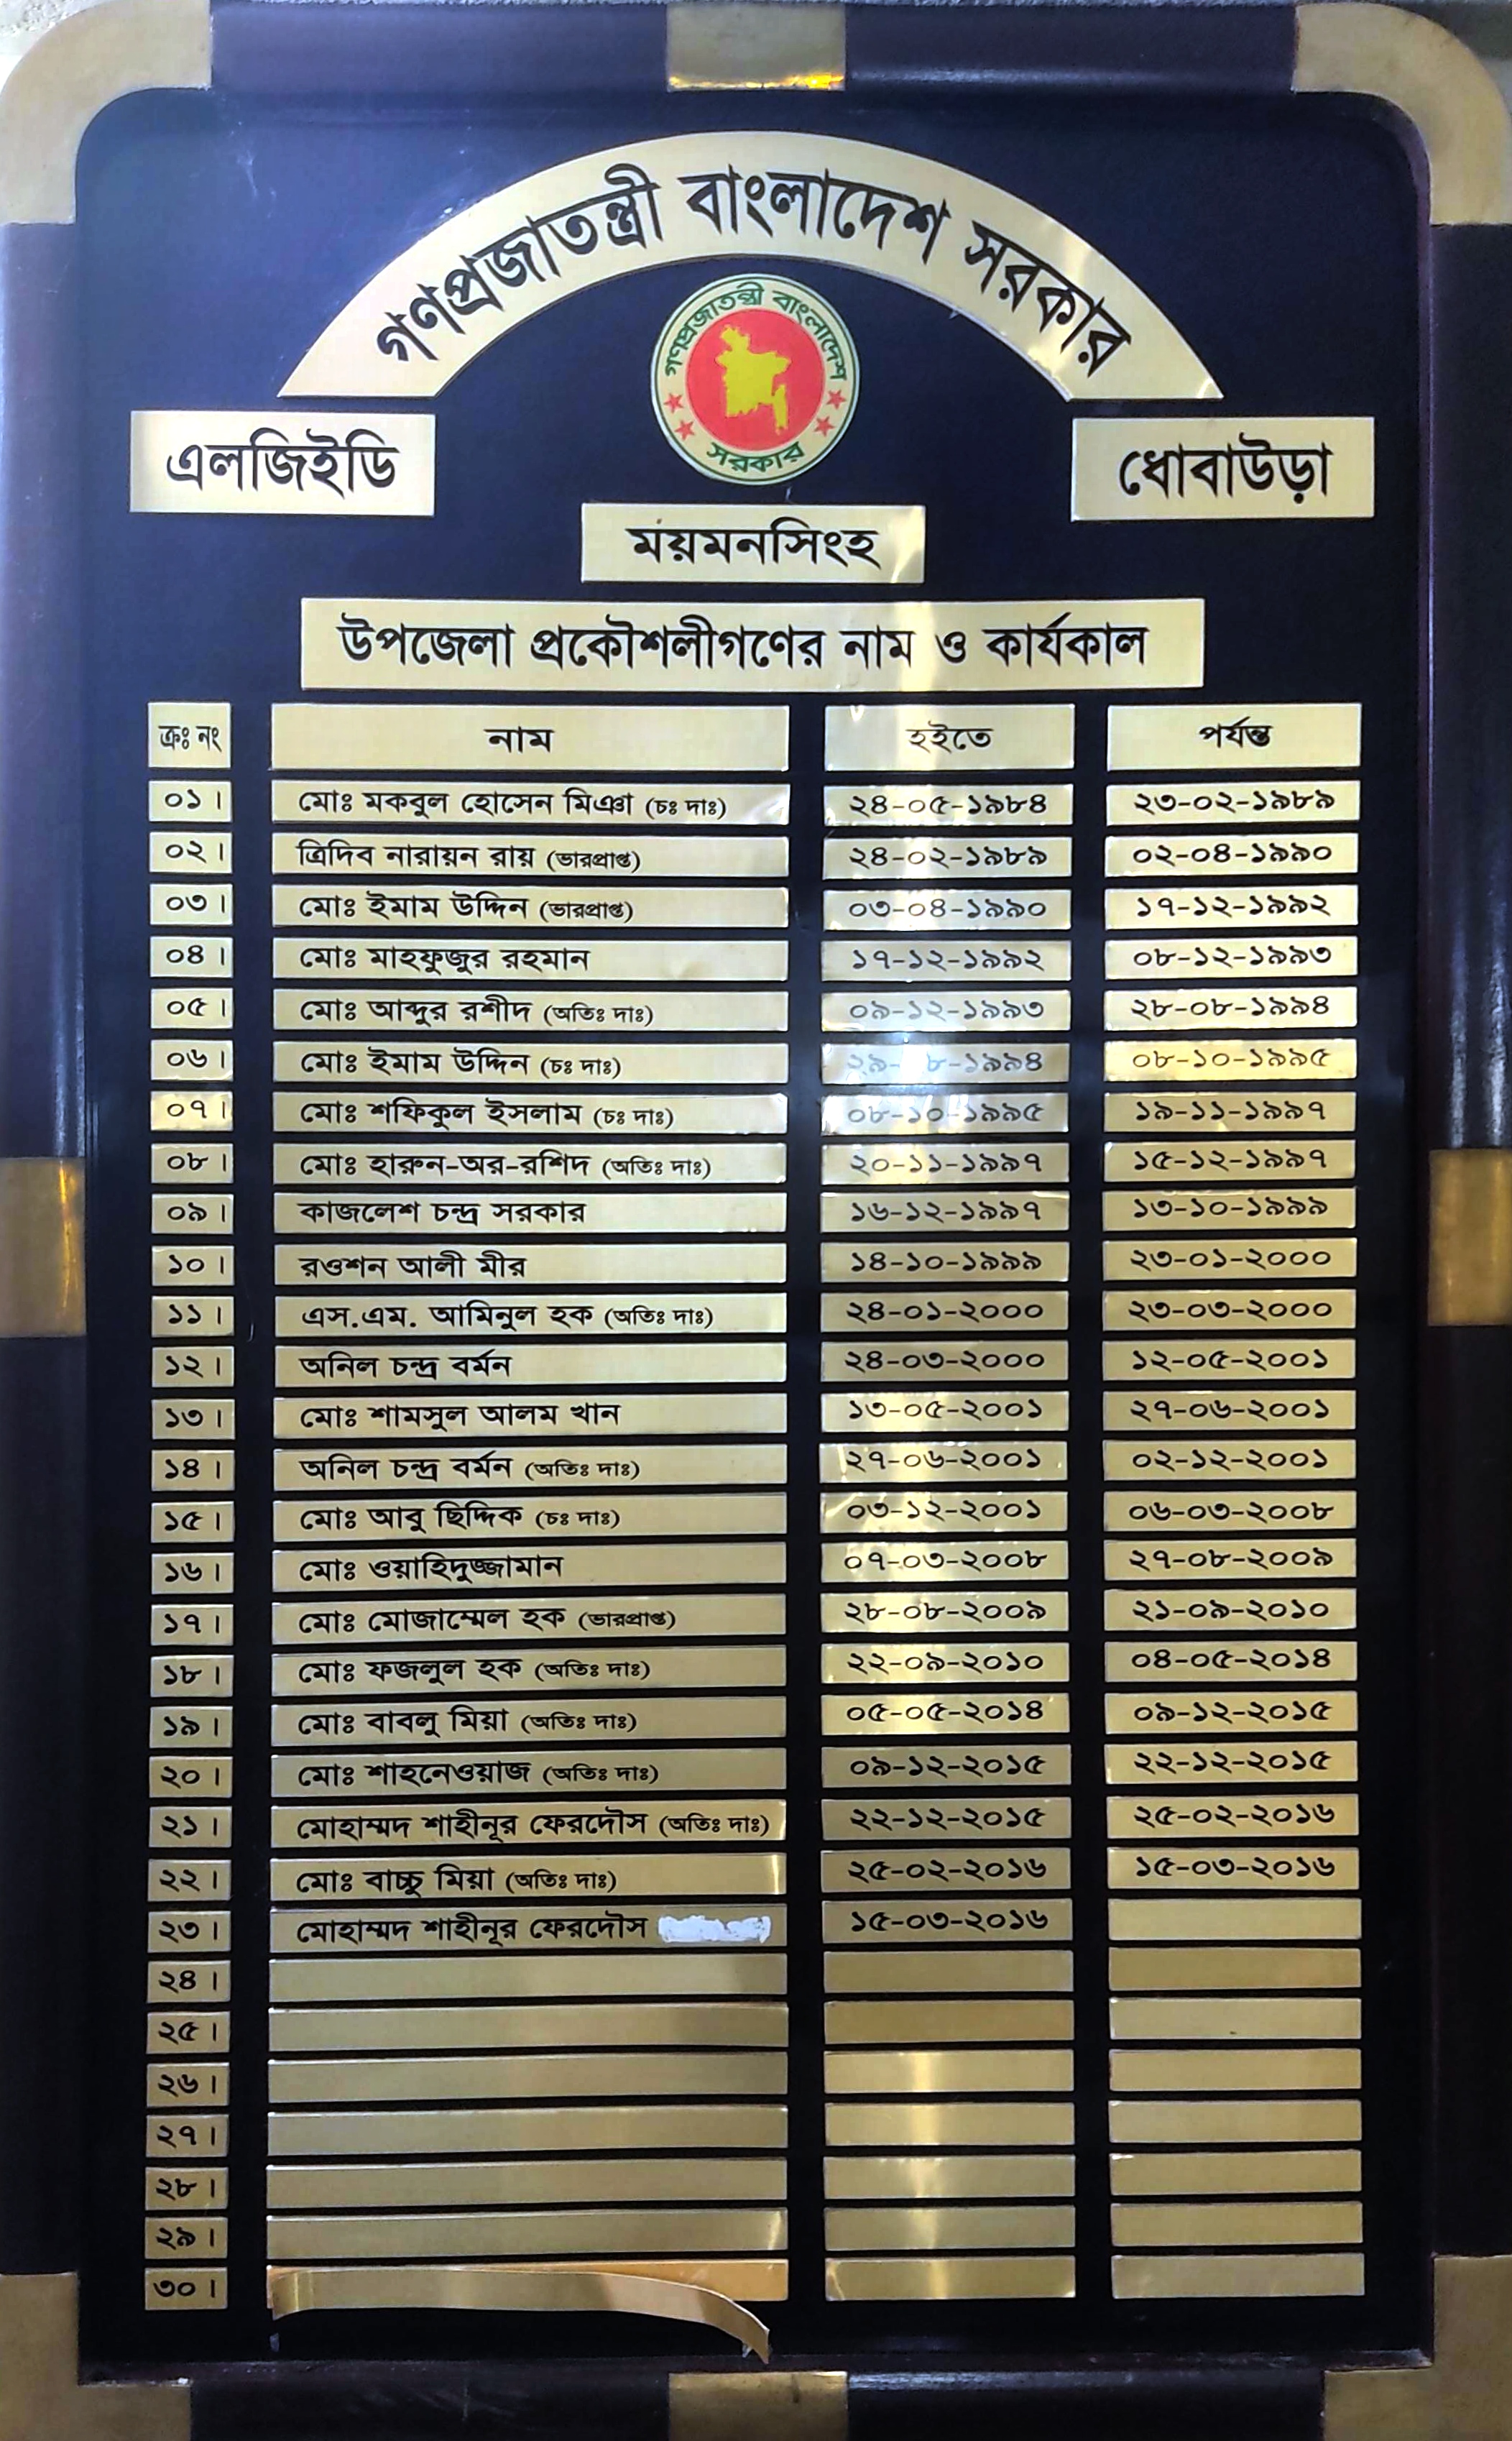 গণপ্রজাতন্ত্রী বাংলাদেশ সরকার
গণপ্রজাতন্ত্রী বাংলাদেশ
সরকার
এলজিইডি
ধোবাউড়া
ময়মনসিংহ
উপজেলা প্রকৌশলীগণের নাম ও কার্যকাল
ক্রঃ নং নাম হইতে পর্যন্ত
০১। মোঃ মকবুল হোসেন মিঞা (চঃ দাঃ) ২৪-০৫-১৯৮৪ ২৩-০২-১৯৮৯
০২। ত্রিদিব নারায়ন রায় (ভারপ্রাপ্ত) ২৪-০২-১৯৮৯ ০২-০৪-১৯৯০
০৩। মোঃ ইমাম উদ্দিন (ভারপ্রাপ্ত) ০৩-০৪-১৯৯০ ১৭-১২-১৯৯২
০৪। মোঃ মাহফুজুর রহমান ১৭-১২-১৯৯২ ০৮-১২-১৯৯৩
০৫। মোঃ আব্দুর রশীদ (অতিঃ দাঃ) ০৯-১২-১৯৯৩ ২৮-০৮-১৯৯৪
০৬। মোঃ ইমাম উদ্দিন (চঃ দাঃ) ০৮-১০-১৯৯৫
০৭। মোঃ শফিকুল ইসলাম (চঃ দাঃ) ০৮-১০-১৯৯৫ ১৯-১১-১৯৯৭
০৮। মোঃ হারুন-অর-রশিদ (অতিঃ দাঃ) ২০-১১-১৯৯৭ ১৫-১২-১৯৯৭
০৯। কাজলেশ চন্দ্র সরকার ১৬-১২-১৯৯৭ ১৩-১০-১৯৯৯
১০। রওশন আলী মীর ১৪-১০-১৯৯৯ ২৩-০১-২০০০
১১। এস.এম. আমিনুল হক (অতিঃ দাঃ) ২৪-০১-২০০০ ২৩-০৩-২০০০
১২। অনিল চন্দ্র বর্মন ২৪-০৩-২০০০ ১২-০৫-২০০১
১৩। মোঃ শামসুল আলম খান ১৩-০৫-২০০১ ২৭-০৬-২০০১
১৪। অনিল চন্দ্র বর্মন (অতিঃ দাঃ) ২৭-০৬-২০০১ ০২-১২-২০০১
১৫। মোঃ আবু ছিদ্দিক (চঃ দাঃ) ০৩-১২-২০০১ ০৬-০৩-২০০৮
১৬। মোঃ ওয়াহিদুজ্জামান ০৭-০৩-২০০৮ ২৭-০৮-২০০৯
১৭। মোঃ মোজাম্মেল হক (ভারপ্রাপ্ত) ২৮-০৮-২০০৯ ২১-০৯-২০১০
১৮। মোঃ ফজলুল হক (অতিঃ দাঃ) ২২-০৯-২০১০ ০৪-০৫-২০১৪
১৯। মোঃ বাবলু মিয়া (অতিঃ দাঃ) ০৫-০৫-২০১৪ ০৯-১২-২০১৫
২০। মোঃ শাহনেওয়াজ (অতিঃ দাঃ) ০৯-১২-২০১৫ ২২-১২-২০১৫
২১। মোহাম্মদ শাহীনূর ফেরদৌস (অতিঃ দাঃ) ২২-১২-২০১৫ ২৫-০২-২০১৬
২২। মোঃ বাচ্চু মিয়া (অতিঃ দাঃ) ২৫-০২-২০১৬ ১৫-০৩-২০১৬
২৩। মোহাম্মদ শাহীনূর ফেরদৌস ১৫-০৩-২০১৬
২৪।
২৫।
২৬।
২৭।
২৮।
২৯।
৩০।